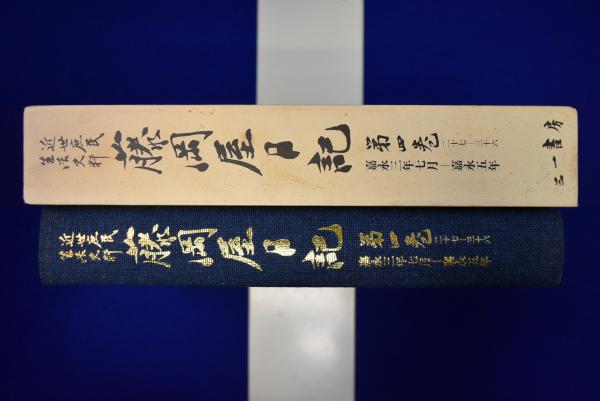 近世庶民
生活史料
藤岡屋日記
第四巻
二十七―三十六
嘉永三年七月―嘉永五年
三一書房
近世庶民
生活史料
藤岡屋日記
第四巻
二十七―三十六
嘉永三年七月―嘉永五年